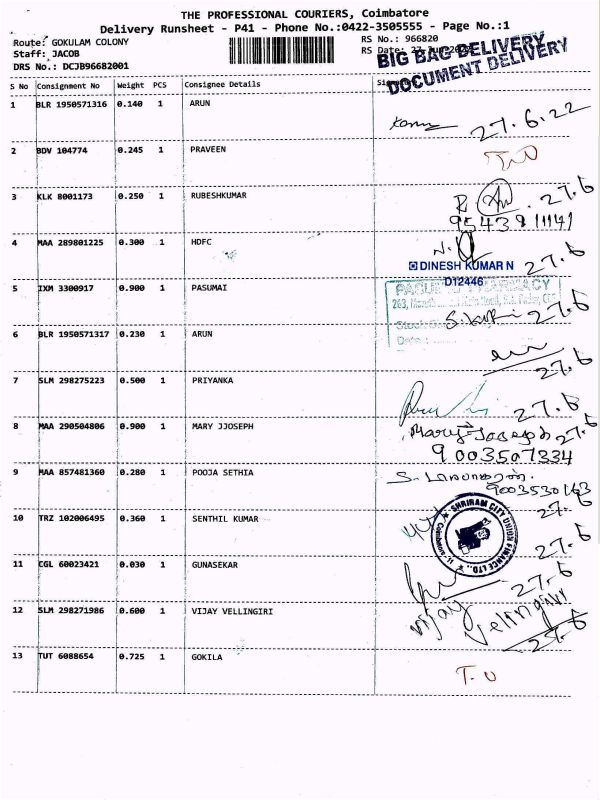 THE PROFESSIONAL COURIERS, Coimbatore
Delivery Runsheet - P41 - Phone No.:0422-3505555 - Page No.:1
Route: GOKULAM COLONY
RS No.: 966820
Staff: JACOB
RS Date:
BIG BAG DELIVERY
DRS No.: DCJB96682001
DOCUMENT DELIVERY
S No Consignment No Weight PCS Consignee Details
1 BLR 1950571316 0.140 1 ARUN
27.6.22
2 BDV 104774 0.245 1 PRAVEEN
3 KLK 8001173 0.250 1 RUBESHKUMAR
27.6
4 MAA 289801225 0.300 1 HDFC
DINESH KUMAR N
27.6
D12446
5 IXM 3300917 0.900 1 PASUMAI
27.6
6 BLR 1950571317 0.230 1 ARUN
27.6
7 SLM 298275223 0.500 1 PRIYANKA
27.6
8 MAA 290504806 0.900 1 MARY JJOSEPH
Mary Joseph 27.6
9003507334
9 MAA 857481360 0.280 1 POOJA SETHIA
9003530163
27.6
10 TRZ 102006495 0.360 1 SENTHIL KUMAR
SHRIRAM CITY UNION FINANCE LTD.,
27.6
11 CGL 60023421 0.030 1 GUNASEKAR
27.6
12 SLM 298271986 0.600 1 VIJAY VELLINGIRI
Vijay Vellingiri
27.6
13 TUT 6088654 0.725 1 GOKILA
T.U